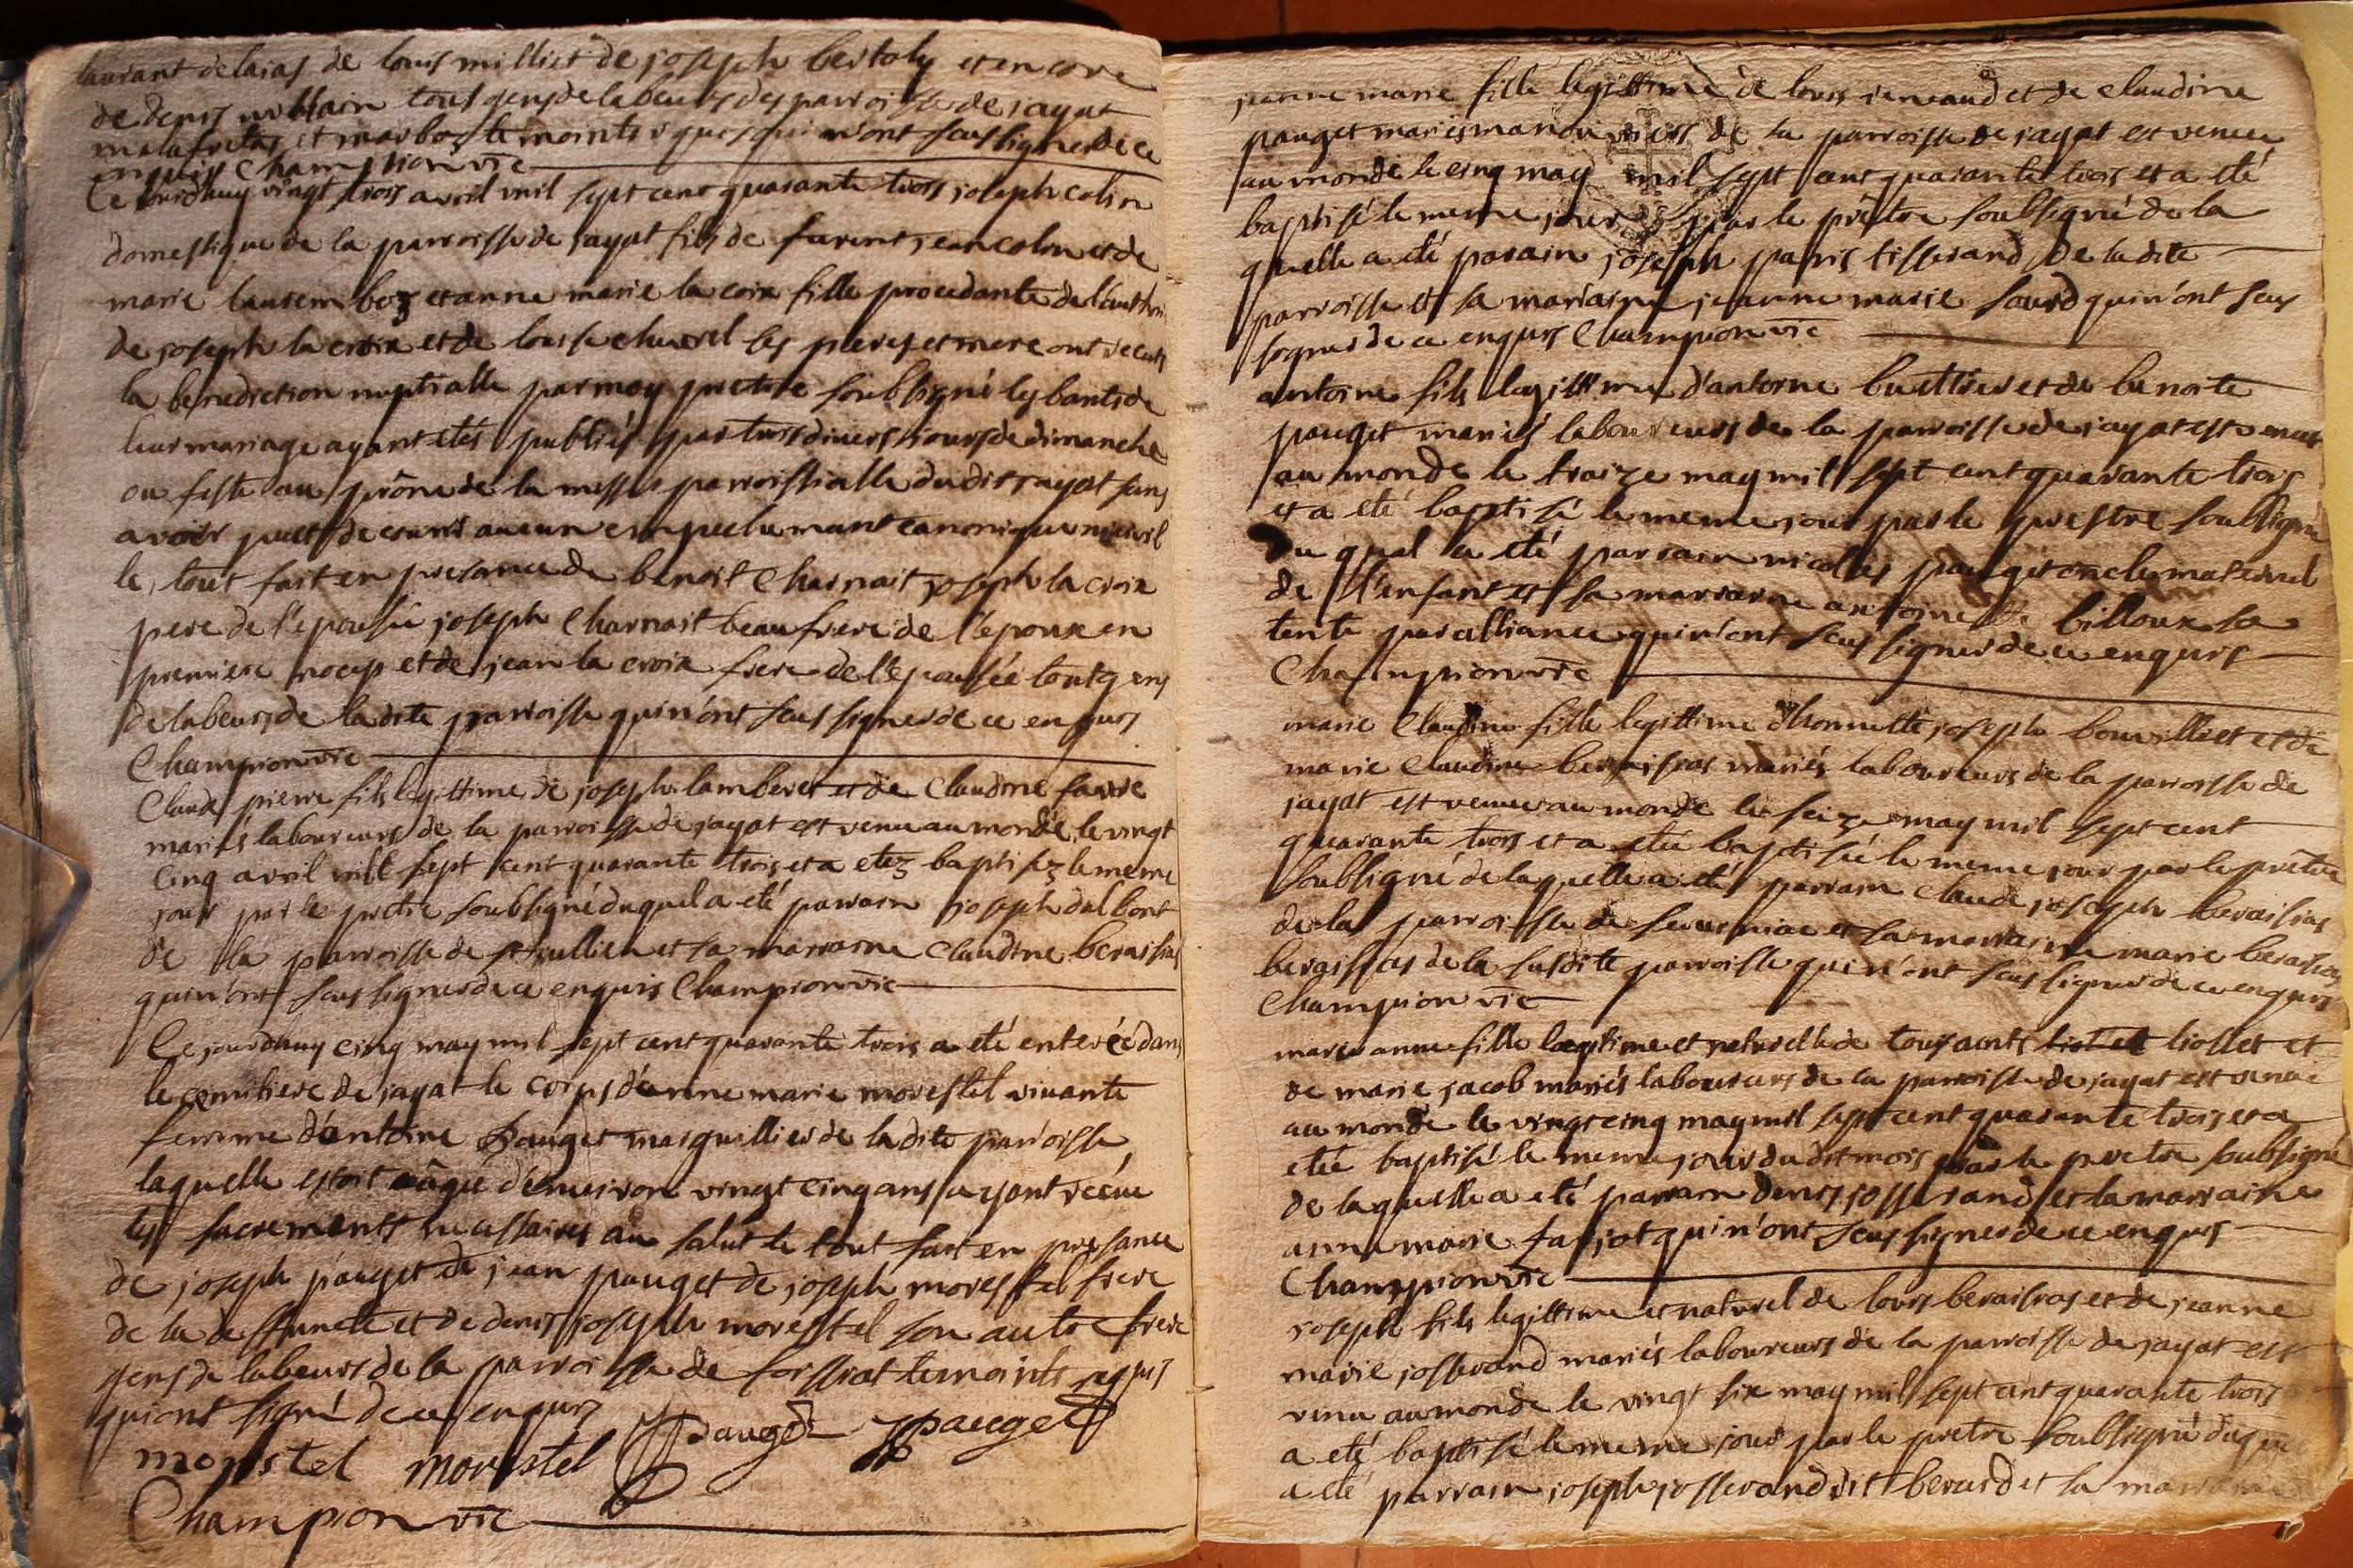 laurant delaias de louis milliet de joseph bertoly et encore
de denis tous gens de labeurs des parroisses de jayat
malafretas et marboz temoints requis qui n'ont seus signer de ce
enquis Champion vic
Ce jourdhuy vingt trois avril mil sept cent quarante trois joseph colin
domestique de la parroisse de jayat fils de furent jean colin et de
marie et anne marie la croix fille procedante de l'authori
de joseph la croix et de louise chavrel ses pere et mere ont recus
la benediction nuptialle par moy pretre soubsigné les bants de
leur mariage ayant etés publiés par trois divers jours de dimanche
ou feste au prône de la messe parroissialle dudit jayat sans
avoir puet decouvrir aucun empechemant canonique ni civil
le tout fait en presance de benoit Charnait joseph la croix
pere de l'epousée joseph Charnait beaufrere de l'epoux en
premiere noces et de jean la croix frere de l'epousée tout gens
de labeurs de ladite parroisse qui n'ont seus signer de ce enquis
Champion vic
Claude pierre fils legittime de joseph lamberet et de Claudine favre
mariés laboureurs de la parroisse de jayat est venu au monde le vingt
cinq avril mil sept cent quarante trois et a etez baptisez le meme
jour par le pretre soubsigné duquel a eté parrain joseph dulbont
de la parroisse de st jullien et sa marraine Claudine beraisias
qui n'ont seus signer de ce enquis Champion vic
Ce jourdhuy cinq may mil sept cent quarante trois a eté enterée dans
le cemitiere de jayat le corps d'anne marie morestel vivante
femme d'antoine pauget marguillier de ladite parroisse
laquelle estoit aâgée d'environ vingt cinq ans ayant recue
les sacrements necessaires au salut le tout fait en presance
de joseph pauget de jean pauget de joseph morestel frere
de la deffuncte et de denis joseph morestel son autre frere
gens de labeurs de la parroisse de foissiat temoints requis
qui ont signé de ce enquis
morestel morestel J pauget J pauget
Champion vic
jeanne marie fille legittime de louis reneaud et de claudine
pauget mariés manouvriers de la parroisse de jayat est venue
au monde le cinq may mil sept cent quarante trois et a eté
baptisé le meme jour par le prêtre soubsigné de la
quelle a eté parain joseph paris tisserand de ladite
parroisse et sa marraine jeanne marie sourd qui n'ont seus
signer de ce enquis Champion vic
antoine fils legittime d'antoine buettier et de benoite
pauget mariés laboureurs de la parroisse de jayat est venus
au monde le traize may mil sept cent quarante trois
et a eté baptisé le meme jour par le prestre soubsigné
du qual a eté parrain nicollas pauget oncle maternel
de l'enfant et sa marraine antoinette billoux sa
tente par alliance qui n'ont seus signer de ce enquis
Champion vic
marie Claudine fille legittime d'honnette joseph bouvilliet et de
marie Claudine beraisias mariés laboureurs de la parroisse de
jayat est venue au monde le seize may mil sept cent
quarante trois et a eté baptisée le meme jour par le prêtre
soubsigné de laquelle a eté parrain Claude joseph beraisias
de la parroisse de et sa marraine marie beraisias
beraisias de la susdite parroisse qui n'ont seus signer de ce enquis
Champion vic
marie anne fille legitime et naturelle de toussaints liollet et
de marie jacob mariés laboureurs de la parroisse de jayat est venue
au monde le vingt cinq may mil sept cent quarante trois et a
etée baptisé le meme jour du dit mois par le pretre soubsigné
de laquelle a eté parrain denis josserand et la marraine
anne marie farjot qui n'ont seus signer de ce enquis
Champion vic
joseph fils legittime et naturel de louis beraisias et de jeanne
marie josserand mariés laboureurs de la parroisse de jayat est
venu au monde le vingt six may mil sept cent quarante trois
a eté baptisé le meme jour par le pretre soubsigné duquel
a eté parrain joseph josserand dit berard et la marraine